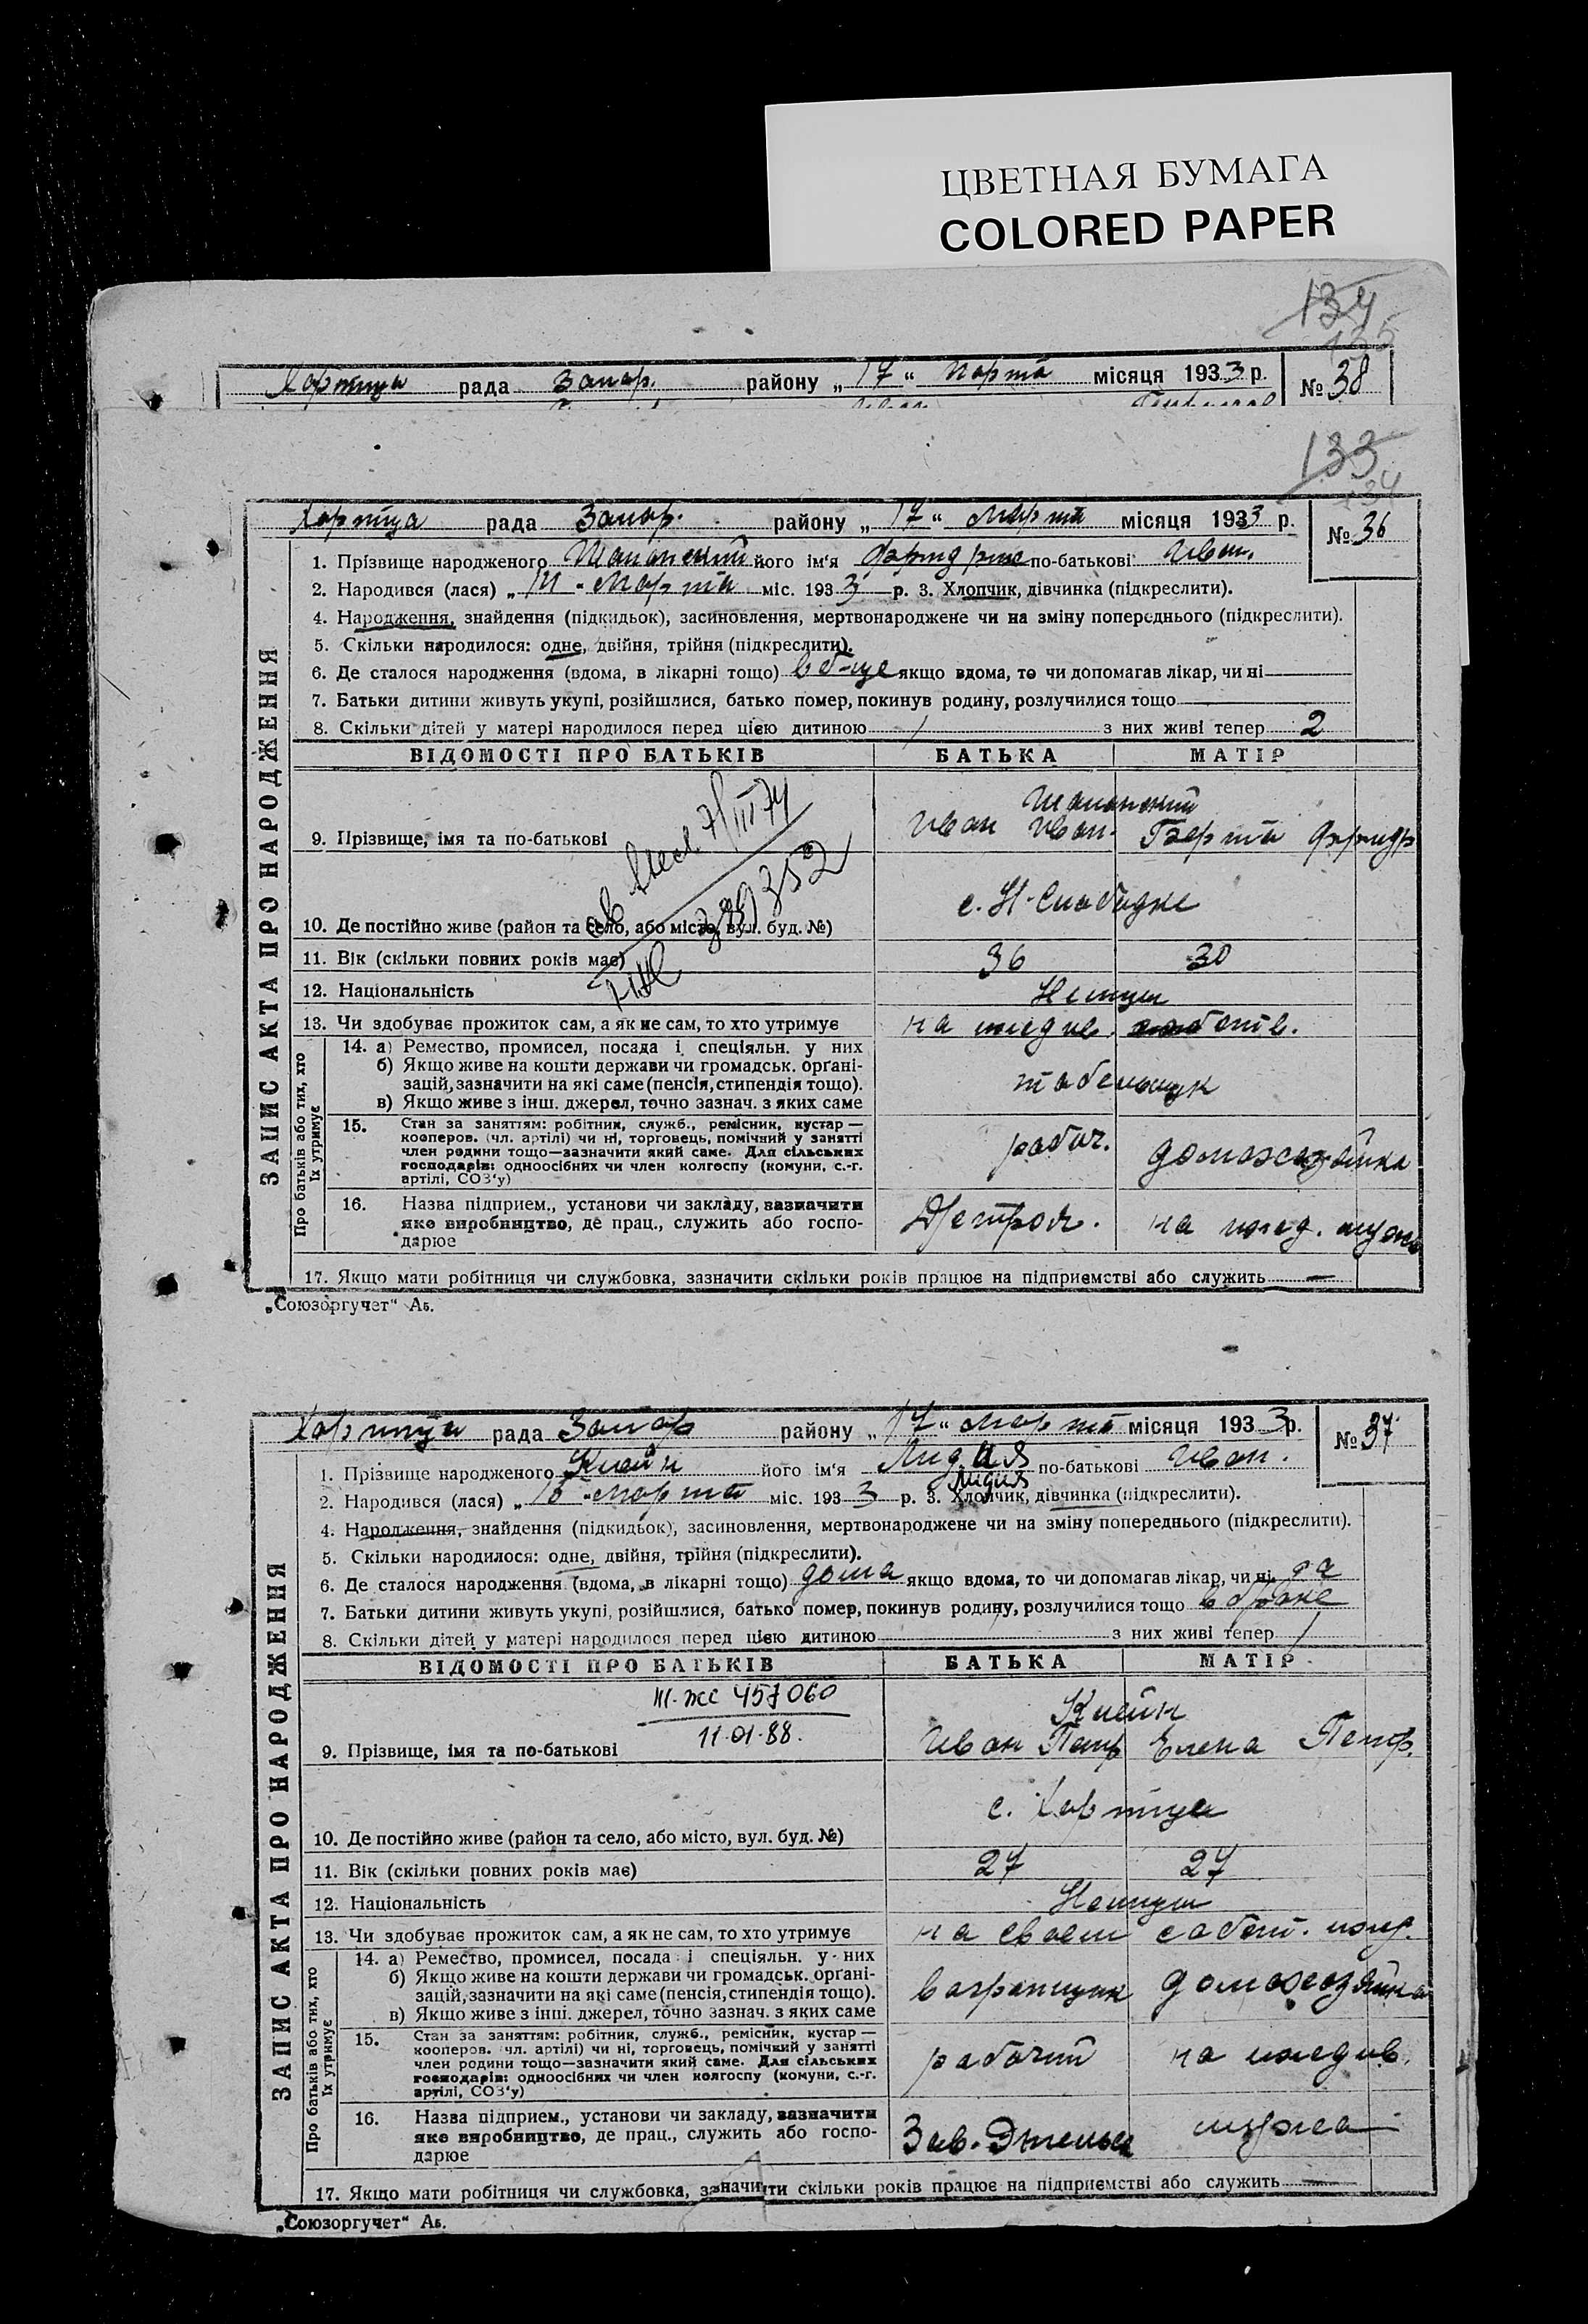 ЦВЕТНАЯ БУМАГА
COLORED PAPER
134
135
Хортица рада Запор. району „17“ Марта місяця 1933 р. № 38
133
134
Хортица рада Запор. району „17“ Марта місяця 1933 р. № 36
ЗАПИС АКТА ПРО НАРОДЖЕННЯ
1. Прізвище народженого його ім'я по-батькові Иван.
2. Народився (лася) „ Марта міс. 1933 р. 3. Хлопчик, дівчинка (підкреслити).
4. Народження, знайдення (підкидьок), засиновлення, мертвонароджене чи на зміну попереднього (підкреслити).
5. Скільки народилося: одне, двійня, трійня (підкреслити).
6. Де сталося народження (вдома, в лікарні тощо) в б-це якщо вдома, то чи допомагав лікар, чи ні
7. Батьки дитини живуть укупі, розійшлися, батько помер, покинув родину, розлучилися тощо
8. Скільки дітей у матері народилося перед цією дитиною 1 з них живі тепер 2
ВІДОМОСТІ ПРО БАТЬКІВ БАТЬКА МАТІР
9. Прізвище, імя та по-батькові Иван Иван.
10. Де постійно живе (район та село, або місто, вул. буд. №)
11. Вік (скільки повних років має) 36 30
12. Національність Немцы
13. Чи здобуває прожиток сам, а як не сам, то хто утримує на иждив.
Про батьків або тих, хто їх утримує
14. а) Ремество, промисел, посада і спеціяльн. у них
б) Якщо живе на кошти держави чи громадськ. організацій, зазначити на які саме (пенсія, стипендія тощо).
в) Якщо живе з інш. джерел, точно зазнач. з яких саме
табельщик
15. Стан за заняттям: робітник, служб., ремісник, кустар —
кооперов. (чл. артілі) чи ні, торговець, помічний у занятті
член родини тощо—зазначити який саме. Для сільських
господарів: одноосібних чи член колгоспу (комуни, с.-г.
артілі, СОЗ'у)
рабоч. домохозяйка
16. Назва підприєм., установи чи закладу, зазначити
яке виробництво, де прац., служить або госпо-
дарює
на ижд. мужа
17. Якщо мати робітниця чи службовка, зазначити скільки років працює на підприємстві або служить —
„Союзоргучет“ Аб.
Хортица рада Запор району „17“ Марта місяця 1933 р. № 37
ЗАПИС АКТА ПРО НАРОДЖЕННЯ
1. Прізвище народженого Клейн його ім'я Лидия по-батькові Иван.
Лидия
2. Народився (лася) „ Марта міс. 1933 р. 3. Хлопчик, дівчинка (підкреслити).
4. Народження, знайдення (підкидьок), засиновлення, мертвонароджене чи на зміну попереднього (підкреслити).
5. Скільки народилося: одне, двійня, трійня (підкреслити).
6. Де сталося народження (вдома, в лікарні тощо) дома якщо вдома, то чи допомагав лікар, чи ні да
7. Батьки дитини живуть укупі, розійшлися, батько помер, покинув родину, розлучилися тощо в браке
8. Скільки дітей у матері народилося перед цією дитиною з них живі тепер 1
ВІДОМОСТІ ПРО БАТЬКІВ БАТЬКА МАТІР
III-ЖС 457060
11.01.88.
Клейн
9. Прізвище, імя та по-батькові Иван Петр Елена Петр.
с. Хортица
10. Де постійно живе (район та село, або місто, вул. буд. №)
11. Вік (скільки повних років має) 27 27
12. Національність Немцы
13. Чи здобуває прожиток сам, а як не сам, то хто утримує на своем собст. ижд.
Про батьків або тих, хто їх утримує
14. а) Ремество, промисел, посада і спеціяльн. у них
б) Якщо живе на кошти держави чи громадськ. організацій, зазначити на які саме (пенсія, стипендія тощо).
в) Якщо живе з інші. джерел, точно зазнач. з яких саме
вагранщик домохозяйка
15. Стан за заняттям: робітник, служб., ремісник, кустар —
кооперов. (чл. артілі) чи ні, торговець, помічний у занятті
член родини тощо—зазначити який саме. Для сільських
господарів: одноосібних чи член колгоспу (комуни, с.-г.
артілі, СОЗ'у)
рабочий на иждив.
16. Назва підприєм., установи чи закладу, зазначити
яке виробництво, де прац., служить або госпо-
дарює
Зав. Энгельса мужа
17. Якщо мати робітниця чи службовка, зазначити скільки років працює на підприємстві або служить —
„Союзоргучет“ Аб.